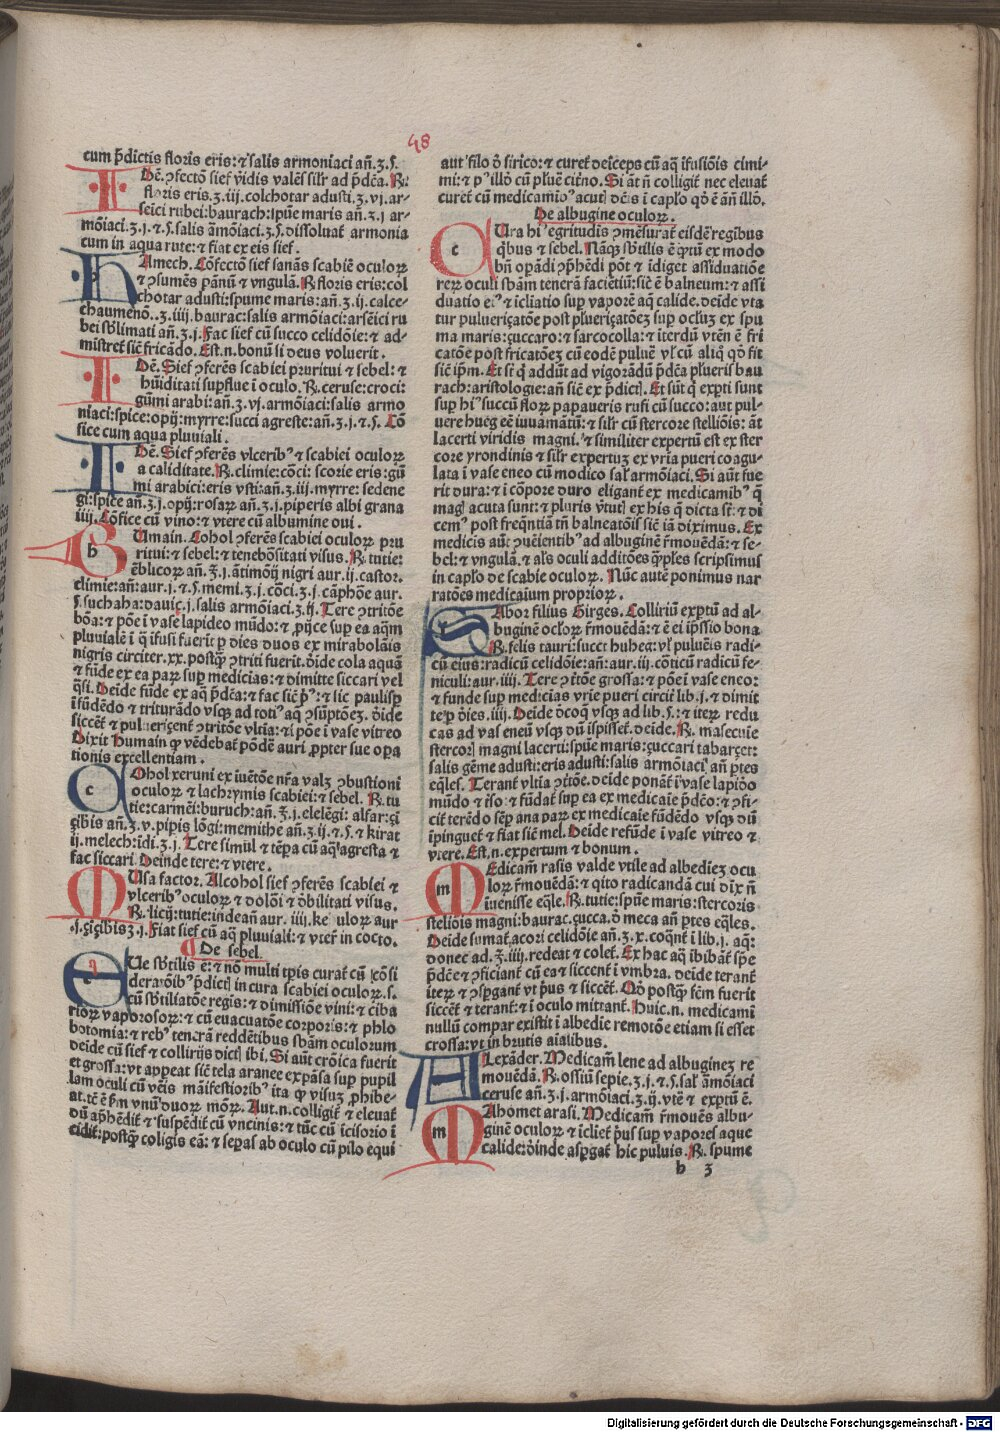 48
cum p̄dictis floris eris: ⁊ salis armoniaci añ.ʒ.ſ.
IDē. ɔfectō sief v̄idis valēs sił̄r ad p̄dc̄a. ℞.
floris eris.ʒ.iij. colchotar adusti.ʒ.vj. ar-
senici rubei: baurach: spūe maris añ.ʒ.j ar-
mōiaci.ʒ.j.⁊.ſ. salis āmōiaci.ʒ.ſ. dissoluat̄ armonia
cum in aqua rute: ⁊ fiat ex eis sief.
HAmech. Cōfectō sief sanās scabiē oculoꝝ
⁊ ɔsumēs pānū ⁊ vngulā. ℞ floris eris: col
chotar adusti: spume maris: añ.ʒ.ij. calce-
cehaumenō..ʒ.iiij. baurac: salis armōiaci: arsēici ru
bei sb̄limati añ.ʒ.j. Fac sief cū succo celidōie: ⁊ ad-
mistret̄ sic̄ fricādo. Est.n. bonū si deus voluerit.
IDē. Sief ɔferēs scabiei pruritui ⁊ sebel: ⁊
hūiditati sup̄flue ī oculo. ℞. ceruse: croci:
gūmi arabi: añ.ʒ.vj. armōiaci: salis armo
niaci: spice: opij: myrre: succi agreste: añ.ʒ.j.⁊.ſ. Cō
fice cum aqua pluuiali.
IDē. Sief ɔferēs vlcerib⁹ ⁊ scabiei oculoꝝ
a caliditate. ℞. climie: cōci: scorie eris: gū
mi arabici: eris vsti: añ.ʒ.iij. myrre: sedene
gi: spice añ.ʒ.j. opij: rosaꝝ añ.ʒ.j. piperis albi grana
iiij. Cōfice cū vino: ⁊ vtere cū albumine oui.
BUmain. Cohol ɔferēs scabiei oculoꝝ pru
ritui: ⁊ sebel: ⁊ tenebōsitati visus. ℞. tutie:
ēblicoꝝ añ.ʒ.j. ātimōij nigri aur.ij. castor.
climie: añ: aur.j.⁊.ſ. memi.ʒ.j. cōci.ʒ.j. cāphōe aur.
ſ. suchaha: dauic̨.j. salis armōiaci.ʒ.ij. Tere ɔtritōe
bōa: ⁊ pōe ī vase lapideo mūdo: ⁊ ꝓijce sup̄ ea aq̄m
pluuialē ī q̄ īfusi fuerīt ꝑ dies duos ex mirabolāis
nigris circiter.xx. postq̄̄ ɔtriti fuerīt. ōide cola aquā
⁊ fūde ex ea paꝝ sup̄ medicias: ⁊ dimitte siccari vel
q̄si. Deīde fūde ex aq̄ p̄dc̄a: ⁊ fac sic̄ p⁹: ⁊ sic paulisꝑ
īfūdēdo ⁊ triturādo vsq̨ ad toti⁹ aq̄ ɔsūptōeʒ. ōide
siccēt̄ ⁊ puluericent̄ ɔtritōe vltia: ⁊ pōe ī vase vitreo
Dixit Humain ꝙ vēdebat̄ pōdē auri ꝓpter sue oꝑa
tionis excellentiam.
COhol xeruni ex iuētōe nr̄a valʒ ɔbustioni
oculoꝝ ⁊ lachrymis scabiei: ⁊ sebel. ℞. tu
tie: carmēi: buruch: añ.ʒ.j. elelēgi: alsar: gī
gibis añ.ʒ.v. pipis lōgi: memithe añ.ʒ.ij.⁊.ſ.⁊ kirat
ij. melech: īdi.ʒ.j. Tere simul ⁊ tēpa cū aq̄ agresta ⁊
fac siccari. Deinde tere: ⁊ vtere.
MUsa factor. Alcohol sief ɔferēs scabiei ⁊
vlcerib⁹ oculoꝝ ⁊ dolōi ⁊ ōbilitati visus.
℞. licij: tutie: indeañ aur.iiij. ke uloꝝ aur
.ſ. gīgibis ʒ.j. Fiat sief cū aq̄ pluuiali: ⁊ vtet̄ in cocto.
De sebel.
QUe sb̄tilis ē: ⁊ nō multi tꝑis curat̄ cū cōsi
derarōib⁹ p̄dict̄ in cura scabiei oculoꝝ.s.
cū sb̄tiliatōe regis: ⁊ dimissiōe vini: ⁊ ciba
rioꝝ vaporosoꝝ: ⁊ cū euacuatōe corporis: ⁊ phlo
botomia: ⁊ reb⁹ tenerā reddētibus sb̄am oculorum
deide cū sief ⁊ collirijs dict̄ ibi. Si aūt crōica fuerit
et grossa: vt appeat sic̄ tela aranee expāsa sup̄ pupil
lam oculi cū vēis māifestiorib⁹ ita ꝙ visuʒ ꝓhibe-
at. tc̄ ē p̄m vnū duoꝝ mōꝝ. Aut.n. colligit̄ ⁊ eleuat̄
dū ap̄hēdit̄ ⁊ suspēdit̄ cū vncinis: ⁊ tūc cū īcisorio ī
cidit̄: postq̄̄ coligis eā: ⁊ seꝑas ab oculo cū pilo equi
aut filo ō sirico: ⁊ curet̄ deīceps cū aq̄ īfusiōis cimi-
mi: ⁊ p⁹ illō cū pl̄uē citr̄no. Si āt n̄ colligit̄ nec eleuat̄
curet̄ cū medicamio⁹ acut̄ dc̄is ī caplo qō ē añ illō.
De albugine oculoꝝ.
CUra hi⁹ egritudis ɔmēsurat̄ eisdē regibus
q̄bus ⁊ sebel. Nāq̨ sb̄tilis ē q̄tū ex modo
bn̄ oꝑādi ɔp̄hēdi pōt ⁊ īdiget assiduatiōe
reꝝ oculi sb̄am tenerā facietiū: sic̄ ē balneum: ⁊ assi
duatio ei⁹ ⁊ īcliatio sup̄ vaporē aq̄ calide. deide vta
tur puluericatōe post pluericatōeʒ sup̄ ocłuʒ ex spu
ma maris: guccaro: ⁊ sarcocolla: ⁊ iterdū vtēn ē fri
catōe post fricatōeʒ cū eodē puluē vł cū aliq̄ qō fit
sic̄ ip̄m. Et sc̄ q̄ addūt ad vigorādū p̄dc̄a plueris bau
rach: aristologie: añ sic̄ ex p̄dict̄. Et sūt q̄ expti sunt
sup̄ hi⁹ succū floꝝ papaueris rufi cū succo: aut pul-
uere hueg eē iuuamātū: ⁊ sił̄r cū stercore stelliōis: āt
lacerti viridis magni. ⁊ similiter expertū est ex ster
core yrondinis ⁊ sił̄r expertuʒ ex vria pueri coagu-
lata ī vase eneo cū modico sał armōiaci. Si aūt fue
rit dura: ⁊ ī cōpore duro eligant̄ ex medicamib⁹ q̄
maḡ acuta sunt: ⁊ pluris v̄tut̄ ex his q̄ dicta sr̄: ⁊ di
cem⁹ post freq̄ntiā tn̄ balneatōis sic̄ iā diximus. Ex
medicis aūt ɔueientib⁹ ad albuginē r̄mouēdā: ⁊ se-
bel: ⁊ vngulā. ⁊ ałs oculi additōes q̄ples scripsimus
in caplo de scabie oculoꝝ. Nūc autē ponimus nar
ratōes medicaium propꝛioꝝ.
SAbor filius Girges. Colliriū exptū ad al-
buginē ocłoꝝ r̄mouēdā: ⁊ ē ei īpssio bona
℞. felis tauri: succi hubeg: vł pulueīs radi-
cū eius: radicū celidōie: añ: aur.iij. cōticū radicū fe-
niculi: aur.iiij. Tere ɔtōe grossa: ⁊ pōe ī vase eneo:
⁊ funde sup̄ medicias vrīe pueri circit̄ lib.j. ⁊ dimit
te ꝑ dies.iiij. Deide ōcoq̄ vsq̨ ad lib.ſ.: ⁊ iteꝝ redu
cas ad vas eneū vsq̨ dū īspisset̄. deide. ℞. masecuie
stercoꝝ magni lacerti: spūe maris: guccari tabarget:
salis gēme adusti: eris adusti: salis armōiaci añ ꝑtes
eq̄les. Terant̄ vltia ɔtōe. deide ponāt̄ ī vase lapidō
mūdo ⁊ īso: ⁊ fūdat̄ sup̄ ea ex medicaie p̄dc̄o: ⁊ ɔfi-
cit̄ terēdo sēꝑ ana paꝝ ex medicaie fūdēdo vsq̨ dū
īpinguet̄ ⁊ fiat sic̄ mel. Deide refūde ī vase vitreo ⁊
vtere. Est.n. expertum ⁊ bonum.
MEdicam̄ rasis valde vtile ad albedieʒ ocu
loꝝ r̄mouēdā: ⁊ qito radicandā cui dix n̄
īuenisse eq̄le. ℞. tutie: spūe maris: stercoris
steliōis magni: baurac. gucca. ō meca añ ꝑtes eq̄les.
Deide sumat̄. acori celidōie añ.ʒ.x. coq̄nt̄ ī lib.j. aq̄:
donec ad.ʒ.iiij. redeat ⁊ colet̄. Ex hac aq̄ ībibāt̄ sp̄e
p̄dc̄e ⁊ ɔficiant̄ cū ea ⁊ siccent̄ ī vmbra. deide terant̄
iteꝝ ⁊ ɔspgant̄ vt p⁹us ⁊ siccēt̄. Qō postq̄̄ sēm fuerit
siccēt̄ ⁊ terant̄: ⁊ ī oculo mittant̄. Huic.n. medicami
nullū compar existit ī albedie remotōe etiam si esset
crossa: vt in brutis aialibus.
ALexāder. Medicam̄ lene ad albugineʒ re
mouēdā. ℞. ossiū sepie.ʒ.j.⁊.ſ. sał āmōiaci
ceruse añ.ʒ.j. armōiaci.ʒ.ij. vtē ⁊ exptū ē.
MAhomet arasi. Medicam̄ r̄mouēs albu-
ginē oculoꝝ ⁊ īcliet̄ p̄us sup̄ vapores aque
calide: ōinde aspgat̄ hic puluis. ℞. spume
h 3
Digitalisierung gefördert durch die Deutsche Forschungsgemeinschaft - DFG